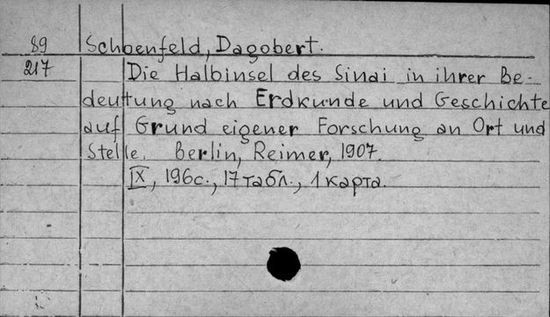 89 Schoenfeld, Dagobert.
217 Die Halbinsel des Sinai in ihrer Be-
deuttung nach Erdkunde und Geschichte
auf Grund eigener Forschung an Ort und
Stelle. Berlin, Reimer, 1907.
IX, 196с., 17 табл., 1 карта.